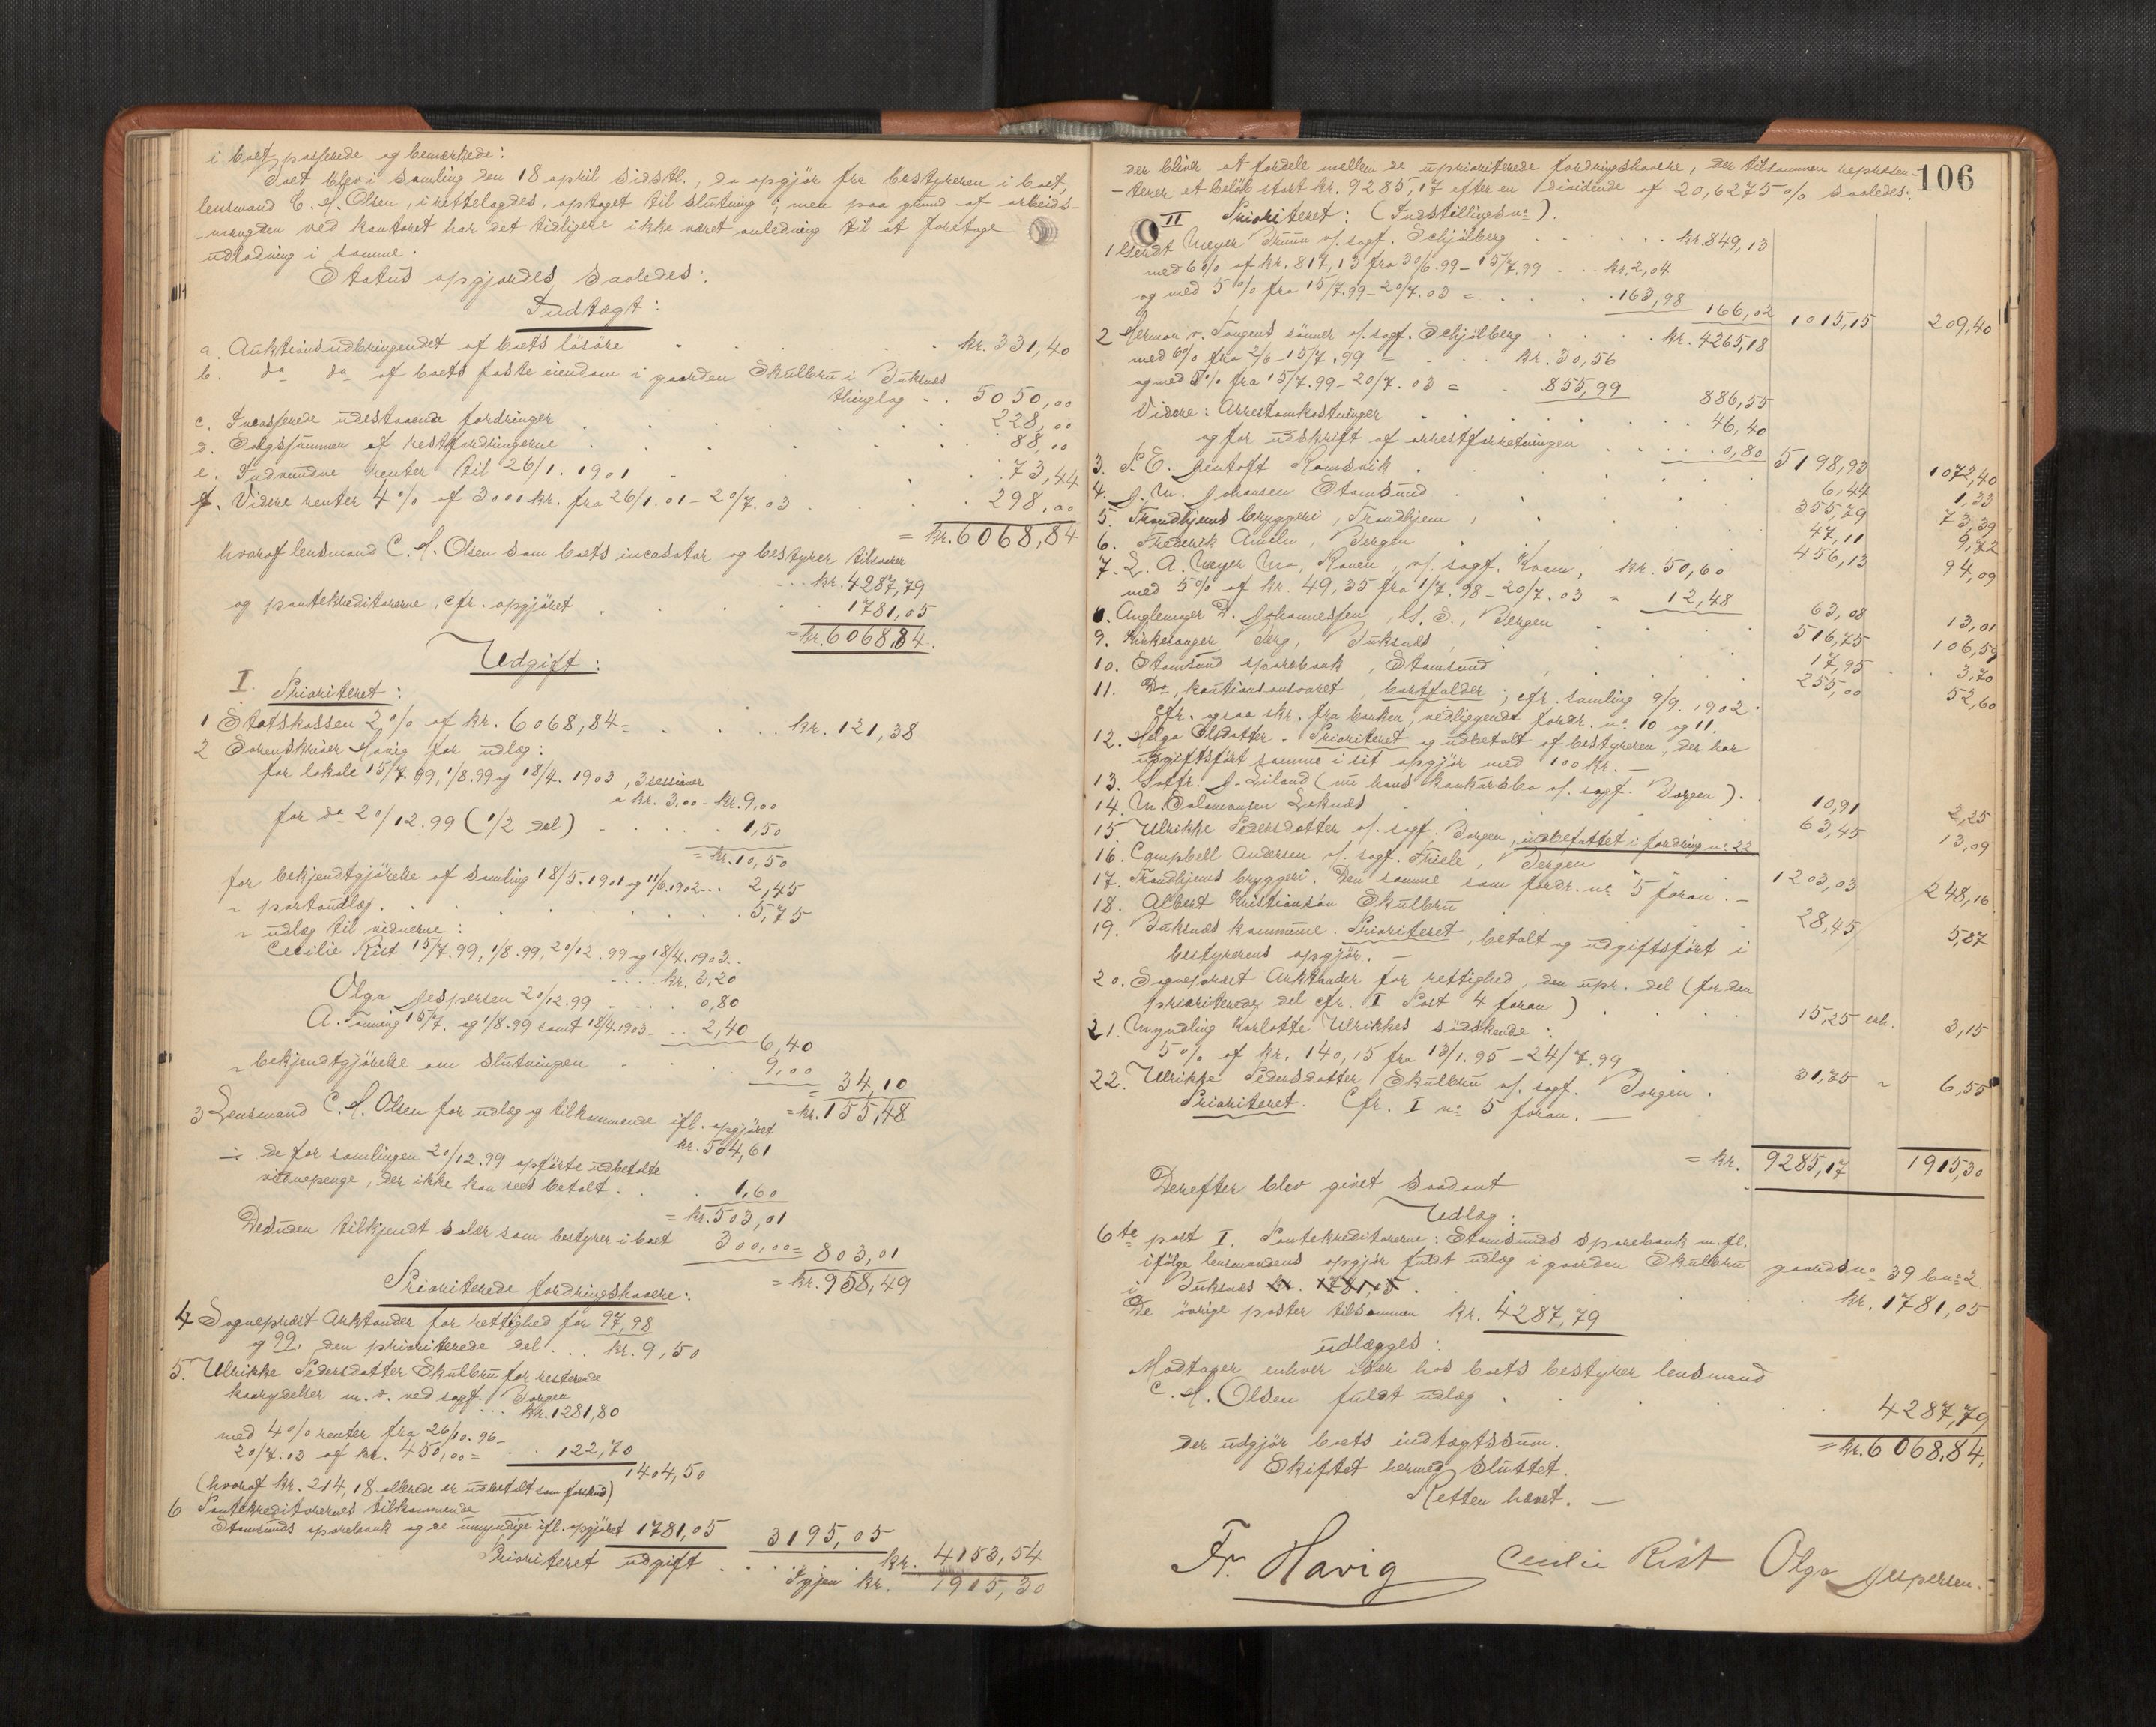 i boet passerede og bemærkede:
Boet blev i samling den 18 april sidstl., da opgjør fra bestyreren i boet,
lensmand C. H. Olsen, irettelagdes, optaget til slutning; men paa grund af arbeids-
mængden ved kontoret har det tidligere ikke været anledning til at foretage
udlodning i samme.
Status opgjordes saaledes:
Indtægt:
a. Auktionsudbringendet af boets løsøre kr. 331,40
b. do do af boets faste eiendom i gaarden Skulbru i Buksnes
thinglag 5050,00
c. Incasserede udestaaende fordringer 228,00
d. Salgssummen af restfordringerne 88,00
e. Indvundne renter til 26/1. 1901 73,44
f. Videre renter 4% af 3000 kr. fra 26/1.01-20/7.03 298,00
= kr. 6068,84
hvoraf lensmand C. H. Olsen som boets incasator og bestyrer tilsvarer
kr. 4287,79
og pantekreditorerne, cfr. opgjøret 1781,05
= kr. 6068,84.
Udgift:
I. Prioriteret:
1 Statskassen 2% af kr. 6068,84 = kr. 121,38
2 Sorenskriver Havig for udlæg:
for lokale 15/7.99, 1/8.99 og 18/4. 1903, 3 sessioner
a kr. 3,00 - kr. 9,00
for do 20/12.99 (1/2 del) 1,50
= kr. 10,50
for bekjendtgjørelse af samling 18/5.1901 og 11/6.1902 2,45
" portoudlæg 5,75
" udlæg til vidnerne:
Cecilie Rist 15/7.99, 1/8.99, 20/12.99 og 18/4.1903
kr. 3,20
Olga Jespersen 20/12.99 0,80
A. Tønning 15/7. og 1/8.99 samt 18/4.1903 2,40
6,40
" bekjendtgjørelse om slutningen 9,00
= 34,10
= kr. 155,48
3 Lensmand C. H. Olsen for udlæg og tilkommende ifl. opgjøret
kr. 504,61
÷ de for samlingen 20/12.99 opførte udbetalte
vidnepenge, der ikke kan sees betalt 1,60
= kr. 503,01
Desuden tilkjendt salær som bestyrer i boet 300,00 = 803,01
= kr. 958,49
Prioriterede fordringshavere:
4 Sogneprest Arktander for rettighed for 97, 98
og 99, den prioriterede del kr. 9,50
5. Ulrikke Pedersdatter Skulbru for resterende
kaarydelser m. v. ved sagf. Borgen
kr. 1281,80
med 4% renter fra 26/10.96-
20/7.03 af kr. 450,00 = 122,70
1404,50
(hvoraf kr. 214,18 allerede er udbetalt som forskud)
6 Pantekreditorernes tilkommende
Stamsunds sparebank og de umyndige ifl. opgjøret 1781,05 3195,05
Prioriteret udgift kr. 4153,54
Igjen kr. 1915,30
106
der bliver at fordele mellem de uprioriterede fordringshavere, der tilsammen repræsen-
-terer et beløb stort kr. 9285,17 efter en dividende af 20,6275% saaledes:
II Prioriteret: (Indstillingsno).
1 Gerdt Meyer Bruun v/. sagf. Schjølberg kr. 849,13
med 6% af kr. 817,13 fra 30/6.99-15/7.99 kr. 2,04
og med 5% fra 15/7.99-20/7.03 = 163,98 166,02 1015,15 209,40
2 Herman v. Tangens sønner v/. sagf. Schjølberg kr. 4265,18
med 6% fra 2/6-15/7.99 = kr. 30,56
og med 5% fra 15/7.99-20/7.03 = 855,99 886,55
Videre: Arrestomkostninger 46,40
og for udskrift af arrestforretningen 0,80 5198,93 1072,40
3. P. E. Jentoft Ramsvik 6,44 1,33
4. J. M. Johansen Stamsund 355,79 73,39
5. Trondhjems bryggeri, Trondhjem 47,11 9,72
6. Frederik Ameln, Bergen 456,13 94,09
7. L. A. Meyer Mo, Ranen, v/. sagf. Kvam, kr. 50,60
med 5% af kr. 49,35 fra 1/7.98-20/7.03 " 12,48 63,08 13,01
8. Anglemager D. Johannessen, Bergen 516,75 106,59
9. Kirkesanger Berg, Buksnes 17,95 3,70
10. Stamsund sparebank, Stamsund 255,00 52,60
11. Do, kautionsansvaret, bortfalder; cfr. samling 9/9. 1902.
Cfr. ogsaa skr. fra banken, vedliggende fordr. no 10 og 11.
12. Helga Olsdatter. Prioriteret og udbetalt af bestyreren, der har
udgiftsført samme i sit opgjør med 100 kr. —
13. Gotfr. J. Liland (nu hans konkursbo v/. sagf. Borgen). 10,91 2,25
14. M. Salomonsen Leknes 63,45 13,09
15 Ulrikke Pedersdatter v/. sagf. Borgen, indbefattet i fordring no 22
16. Campbell Andersen v/. sagf. Thiele, Bergen 1203,03 248,16
17. Trondhjems bryggeri. Den samme som fordr. no 5 foran. —
18. Albert Kristiansen Skulbru 28,45 5,87
19. Buksnes kommune. Prioriteret, betalt og udgiftsført i
bestyrerens opgjør. —
20. Sogneprest Arktander for rettighed, den upr. del (for den
prioriterede del cfr. I Post 4 foran) 15,25 erh. 3,15
21. Myndling Karlotte Ulrikkes sødskende:
5% af kr. 140,15 fra 13/1.95-24/7.99 31,75 " 6,55
22. Ulrikke Pedersdatter Skulbru v/. sagf. Borgen.
Prioriteret. Cfr. I no 5 foran. —
= kr. 9285,17 1915,30
Derefter blev givet saadant
Udlæg:
6te post I. Pantekreditorerne: Stamsunds sparebank m. fl.
ifølge lensmandens opgjør fuldt udlæg i gaarden Skulbru gaardsno 39 bno 2
i Buksnes kr. 1781,05 kr. 1781,05
De øvrige poster tilsammen kr. 4287,79
udlægges:
Modtager enhver især hos boets bestyrer lensmand
C. H. Olsen fuldt udlæg 4287,79
der udgjør boets indtægtssum. = kr. 6068,84.
Skiftet hermed sluttet.
Retten hævet. —
Fr. Havig Cecilie Rist Olga Jespersen.